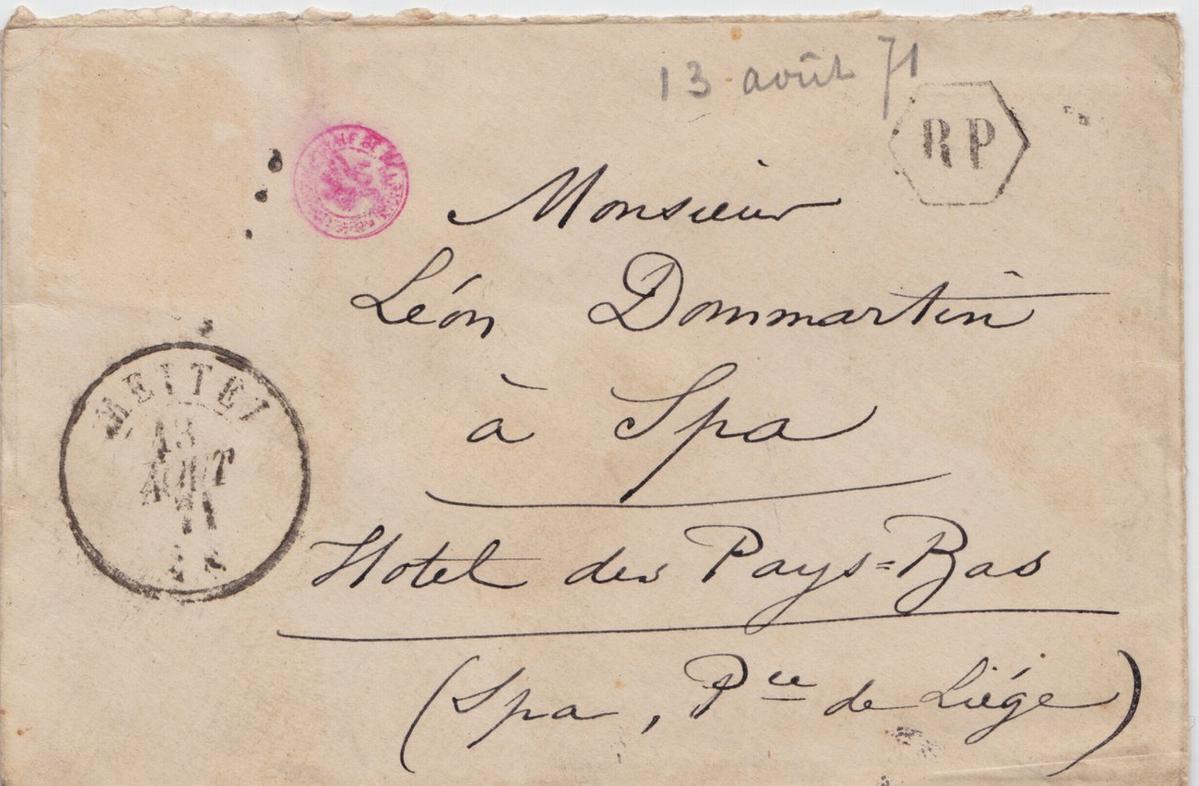 13 août 71
RP
Monsieur
Léon Dommartin
à Spa
Hotel des Pays=Bas
(Spa, Pce de Liége)
METTET
13
AOUT
71